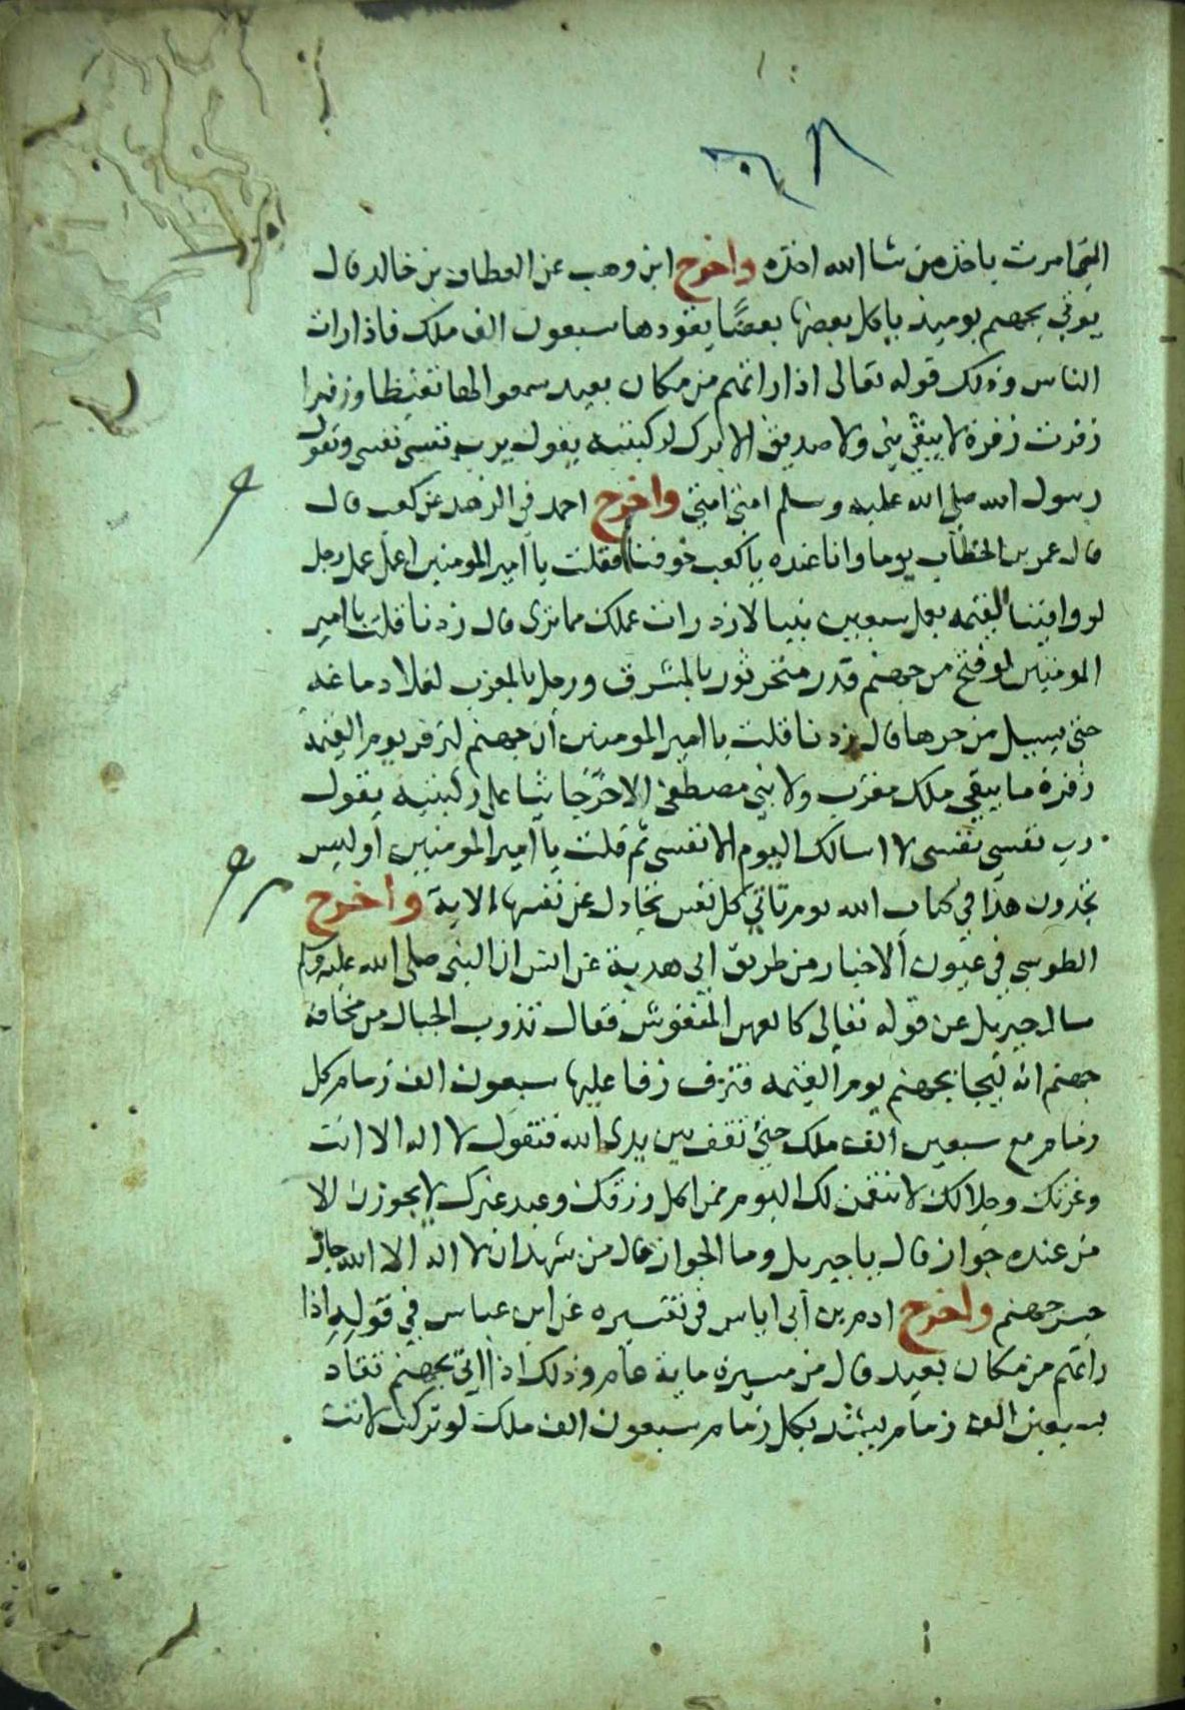 التي امرت باخذه من شا الله اخذه واخرج ابن وهب عن العطاف بن خالد قال
يوتي بجهنم يوميذ ياكل بعضها بعضًا يقودها سبعون الف ملك فاذا رات
الناس وذلك قوله تعالى اذا راتهم من مكان بعيد سمعوا لها تغيظا وزفيرا
زفرت زفرة لا يبقي نبي ولا صديق الا برك لركبتيه يقول يرب نفسي نفسي ويقول
رسول الله صلى الله عليه وسلم امتي امتي واخرج احمد في الزهد عن كعب قال
قال عمر بن الخطاب يوما وانا عنده يا كعب خوفنا فقلت يا امير المومنين اعمل عمل رجل
لو وافيت القيمه بعمل سبعين نبيا لازدرات عملك مما ترى قال زدنا قلت يا امير
المومنين لو فتح من جهنم قدر منخر ثور بالمشرق ورجل بالمغرب لغلا دماغه
حتى يسيل من حرها قال زدنا قلت يا امير المومنين ان جهنم لتزفر يوم القيمة
زفرة ما يبقي ملك مقرب ولا نبي مصطفى الا خر جاثيا على ركبتيه يقول
رب نفسي نفسي لا اسالك اليوم الا نفسي ثم قلت يا امير المومنين اوليس
تجدون هذا في كتاب الله يوم تاتي كل نفس تجادل عن نفسها الاية واخرج
الطوسي في عيون الاخبار من طريق ابي هدبة عن انس ان النبي صلى الله عليه وسلم
سال جبريل عن قوله تعالى كالعهن المنفوش فقال تذوب الجبال من مخافة
جهنم انه ليجا بجهنم يوم القيمه فتزف زفا عليها سبعون الف زمام كل
زمام مع سبعين الف ملك حتى تقف بين يدي الله فتقول لا اله الا انت
وعزتك وجلالك لا نتقمن لك اليوم ممن اكل رزقك وعبد غيرك لا يجوزن الا
من عنده جواز قال يا جبريل وما الجواز قال من شهد ان لا اله الا الله جاز
جسر جهنم واخرج ادم بن ابي اياس في تفسيره عن ابن عباس في قوله اذا
راتهم من مكان بعيد قال من مسيرة ماية عام وذلك اذا اتي بجهنم تقاد
بسبعين الف زمام يشد بكل زمام سبعون الف ملك لو تركت لاتت